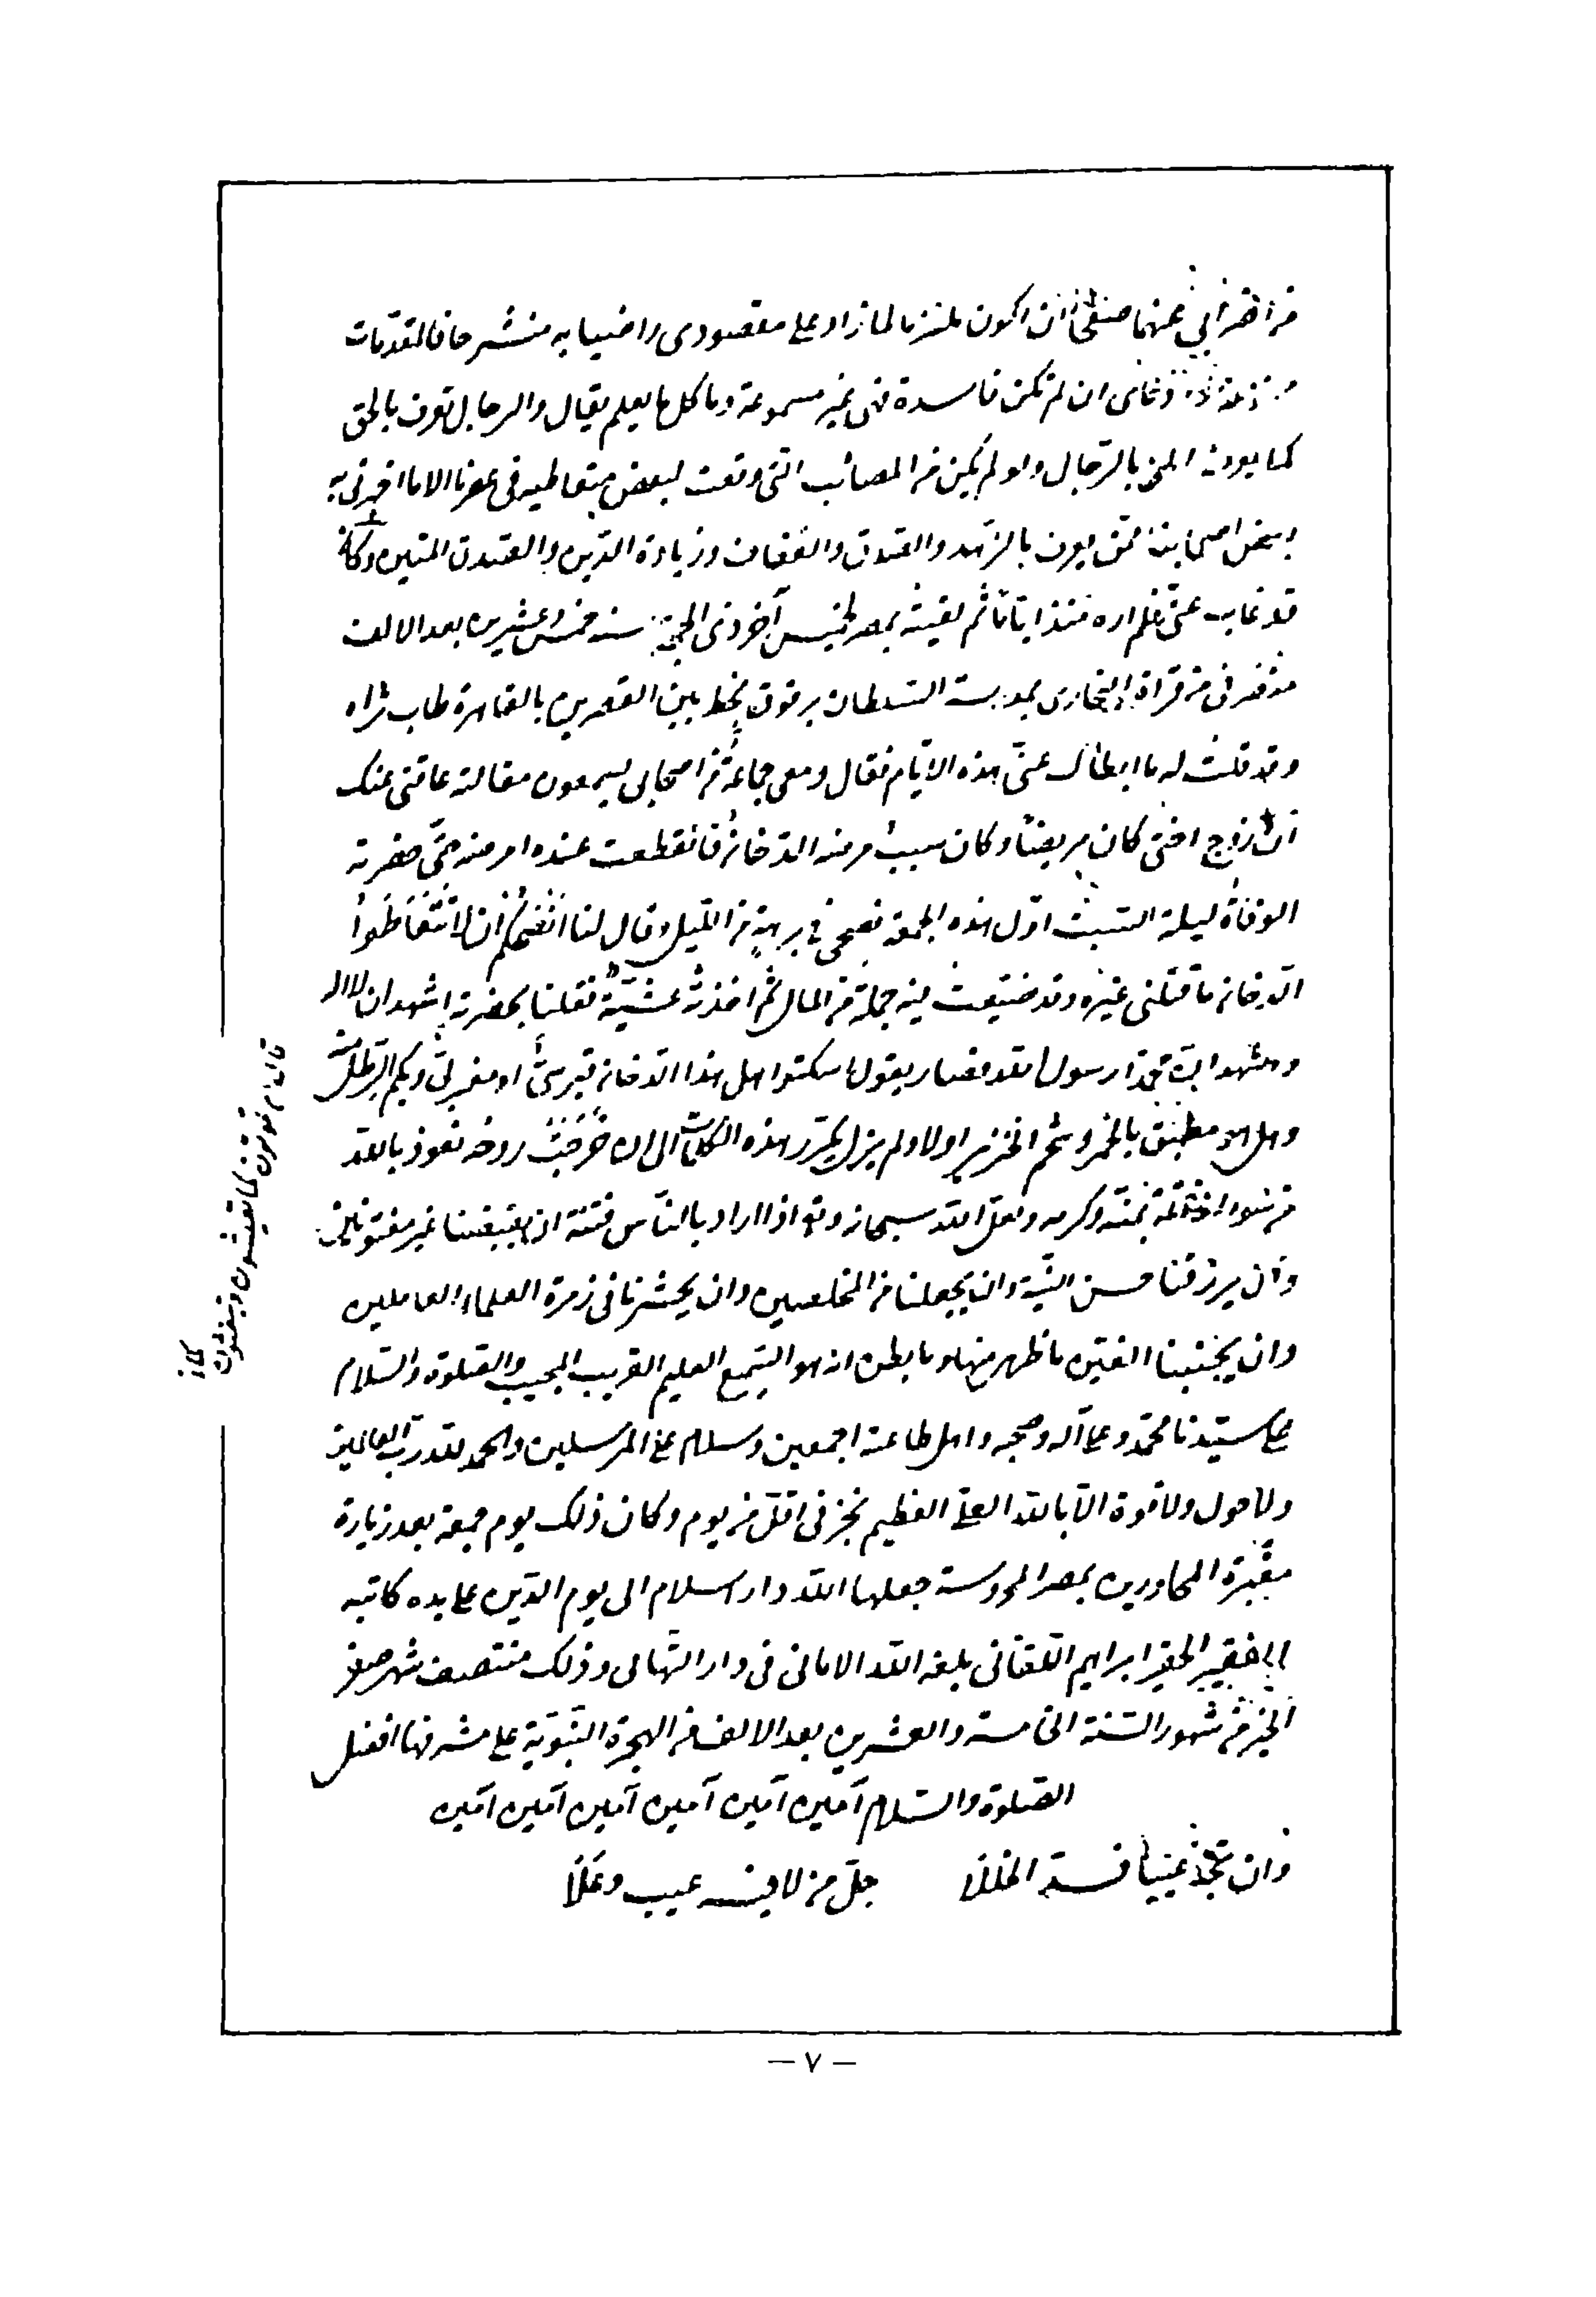 من اضرابي عنهما صفحا ان اكون ملتزما لما زاد على مقصودى راضيا به منشرحا فالمقدمات
ان لم تكن فاسدة فهى غير مسموعة وما كل ما يعلم يقال والرجال تعرف بالحق
كما يعرف الحق بالرجال ولو لم يكن من المصائب التى وقعت لبعض متعاطيه فى عصرنا الا ما اخبرنى به
بعض اصحابنا ممن يعرف بالزهد والصدق والعفاف وزيادة الدين والصدق المتين وكان
قد غاب عنى فلم اره منذ ايام ثم لقيته بمصر لخميس آخر ذى الحجة سنة خمس وعشرين بعد الالف
منصرفى من قراة البخارى بمدرسة السلطان برقوق بخط بين القصرين بالقاهرة طاب ثراه
وقد قلت له ما ابطاك عنى هذه الايام فقال ومعى جماعة من اصحابى يسمعون مقالته عاقنى عنك
ان زوج اختى كان مريضا وكان سبب مرضه الدخان فانقطعت عنده امرضه حتى حضرته
الوفاة ليلة السبت اول هذه الجمعة فصحى فى برهة من الليل وقال لنا انصحكم ان لا تتعاطوا
الدخان ما قتلنى غيره وقد ضيعت فيه جملة من المال ثم اخذته غشية فقلنا بحضرته اشهد ان لا اله
واشهد ان محمدا رسول الله فصار يقول اسكتوا هل هذا الدخان قبرسى او مغربى وبكم الرطل منه
وهل هو مطبق بالخمر وشحم الخنزير او لا ولم يزل يكرر هذه الكلمات الى ان خرجت روحه نعوذ بالله
من سوء الخاتمة بمنه وكرمه ولعل الله سبحانه وتع اذا اراد بالناس فتنة ان يقبضنا غير مفتونين
وان يرزقنا حسن النية وان يجعلنا من المخلصين وان يحشرنا فى زمرة العلماء العاملين
وان يجنبنا الفتن ما ظهر منها وما بطن انه هو السميع العليم القريب المجيب والصلوة والسلام
على سيدنا محمد وعلى آله وصحبه واهل طاعته اجمعين وسلام على المرسلين والحمد لله رب العالمين
ولا حول ولا قوة الا بالله العلى العظيم نجز فى اقل من يوم وكان ذلك يوم جمعة بعد زيارة
مقبرة المجاورين بمصر المحروسة جعلها الله دار اسلام الى يوم الدين على يده كاتبه
الفقير الحقير ابراهيم اللقانى بلغه الله الامانى فى دار التهانى وذلك منتصف شهر صفر
الخير من شهور السنة الخامسة والعشرين بعد الالف من الهجرة النبوية على مشرفها افضل
الصلوة والسلام آمين آمين آمين آمين آمين آمين
وان تجد عيبا فسد الخللا جل من لا فيه عيب وعلا
قال ء م تموتون كما تعيشون وتبعثون
كما
— ٧ —